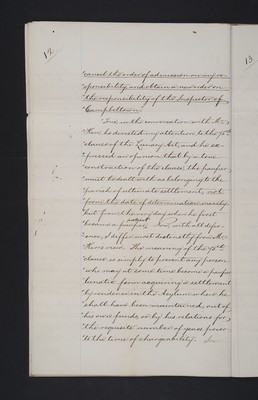 12.
cancel the order of admission on my re-
sponsibility and obtain a new order on
the responsibility of the Inspector of
Campbeltown.
Then in the conversation with Mr
Kerr he directed my attention to the 75th
clause of the Lunacy Act, and he ex-
pressed an opinion that by a true
construction of the clause the pauper
must be dealt with as belonging to the
parish of ultimate settlement, not
from the date of determination merely
but from the very day when he first
became a pauper. Now, with all defer-
ence, I differ most distinctly from Mr
Kerr's view. The meaning of the 75th
clause is simply to prevent any person
who may at some time become a pauper
lunatic from acquiring a settlement
by residence in the Asylum where he
shall have been maintained, out of
his own funds or by his relations for
the requisite number of years prior
to the time of chargeability.